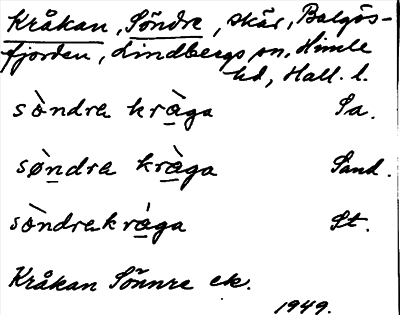 Kråkan, Söndre, skär, Balgös-
fjorden, Lindbergs sn. Himle
hd, Hall. l.
sòndra kràga Sa.
søndra kràga Sand.
sòndrakràga St.
Kråkan Sönnre ek.
1949.